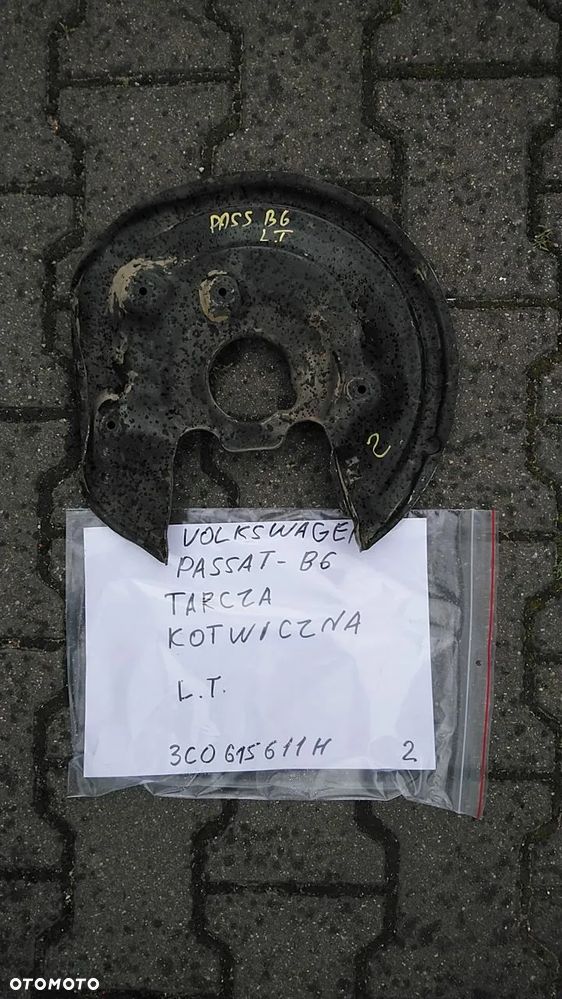 PASS B6
L.T
2
VOLKSWAGEN
PASSAT - B6
TARCZA
KOTWICZNA
L.T.
3C0615611H 2
OTOMOTO